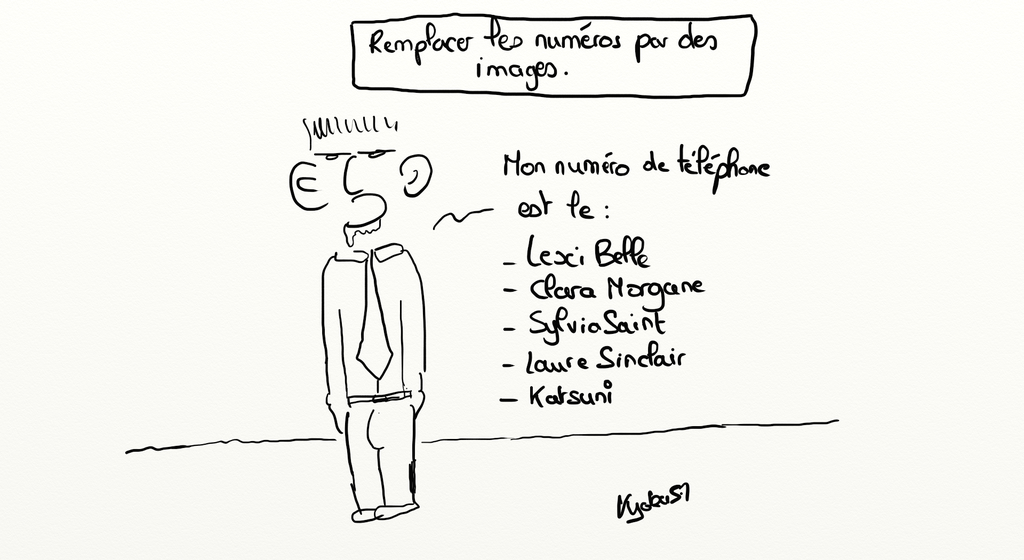 Remplacer les numéros par des
images.
Mon numéro de téléphone
est le :
- Lexi Belle
- Clara Morgane
- Sylvia Saint
- Laure Sinclair
- Katsuni